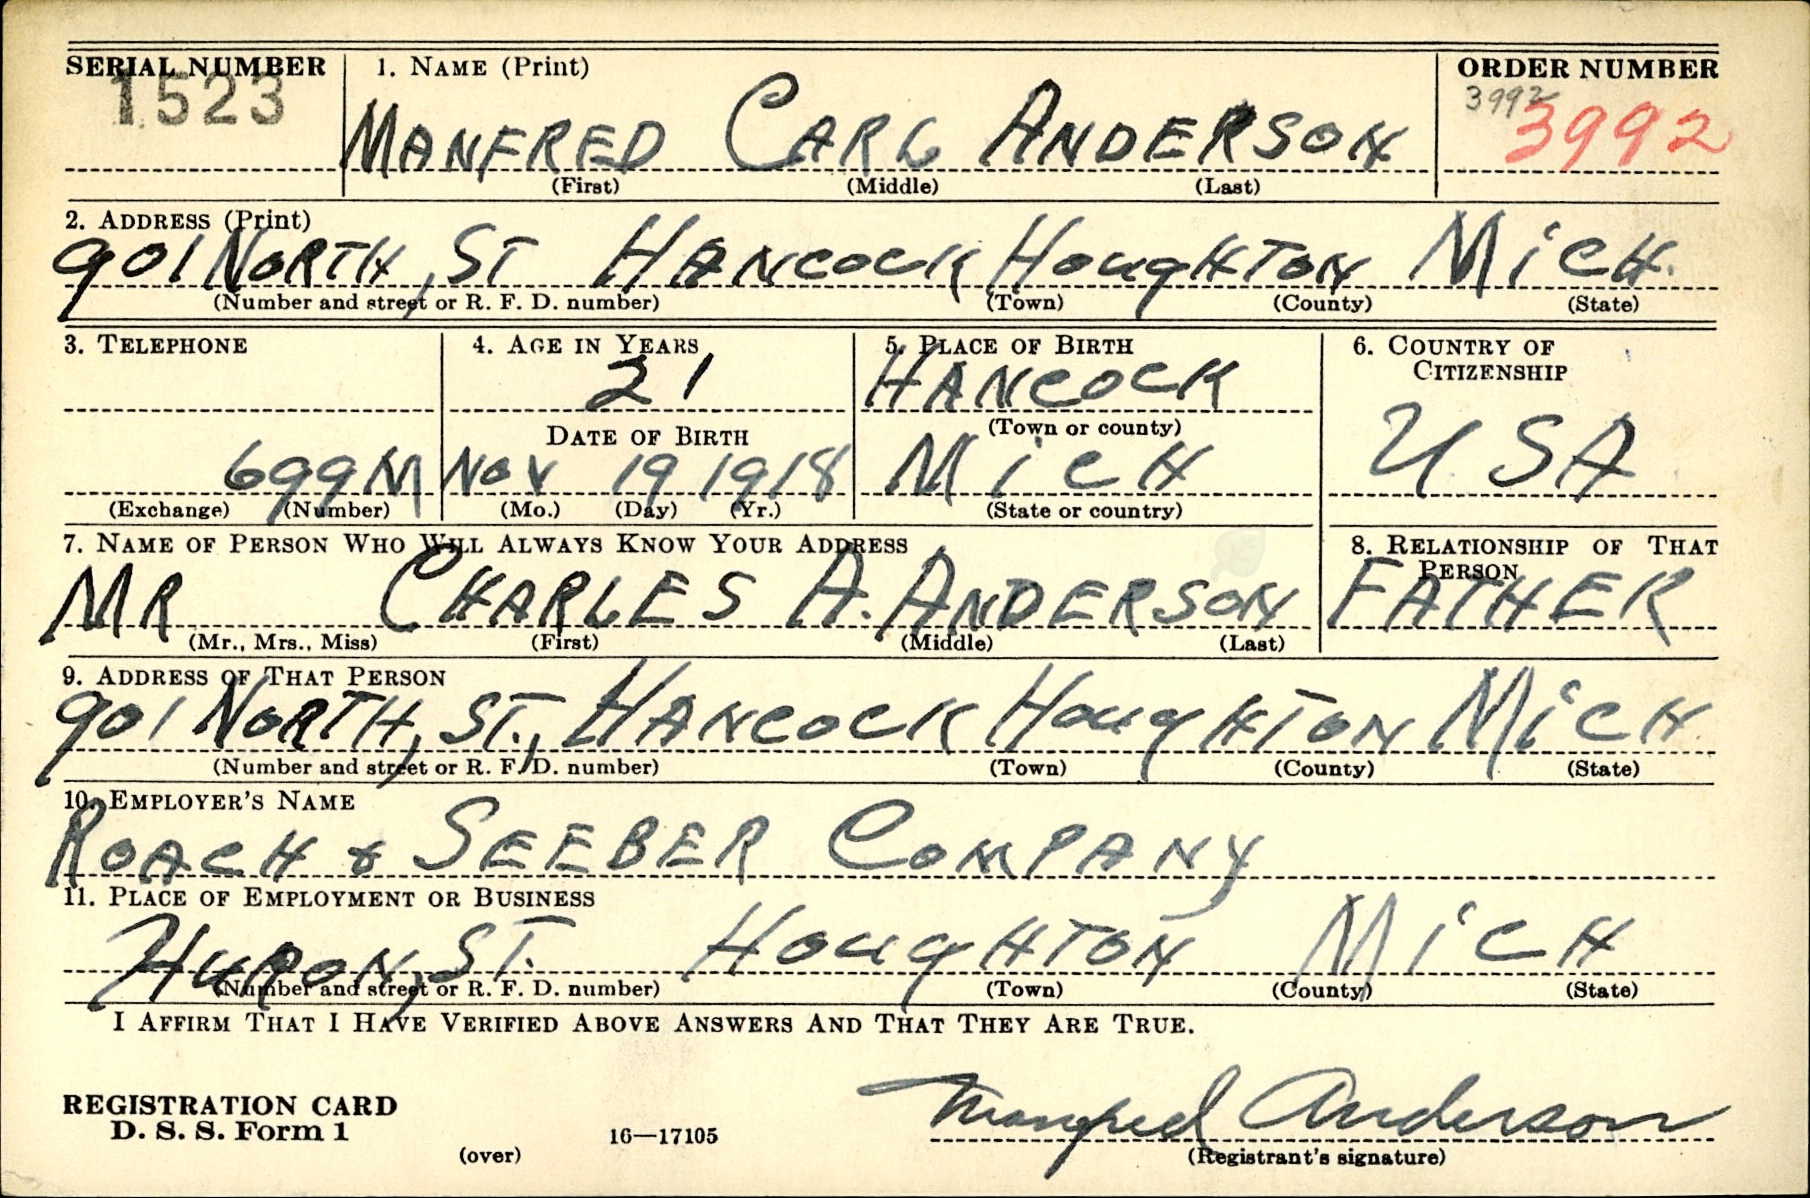 SERIAL NUMBER 1. NAME (Print) ORDER NUMBER
1523 MANFRED CARL ANDERSON 3992 3992
(First) (Middle) (Last)
2. ADDRESS (Print)
901 NORTH, ST HANCOCK HOUGHTON MICH.
(Number and street or R. F. D. number) (Town) (County) (State)
3. TELEPHONE 4. AGE IN YEARS 5. PLACE OF BIRTH 6. COUNTRY OF
CITIZENSHIP
21 HANCOCK
(Town or county)
DATE OF BIRTH
699M NOV 19 1918 MICH USA
(Exchange) (Number) (Mo.) (Day) (Yr.) (State or country)
7. NAME OF PERSON WHO WILL ALWAYS KNOW YOUR ADDRESS 8. RELATIONSHIP OF THAT
PERSON
MR CHARLES A. ANDERSON FATHER
(Mr., Mrs., Miss) (First) (Middle) (Last)
9. ADDRESS OF THAT PERSON
901 NORTH, ST., HANCOCK HOUGHTON MICH
(Number and street or R. F. D. number) (Town) (County) (State)
10. EMPLOYER'S NAME
ROACH & SEEBER COMPANY
11. PLACE OF EMPLOYMENT OR BUSINESS
HURON, ST. HOUGHTON MICH
(Number and street or R. F. D. number) (Town) (County) (State)
I AFFIRM THAT I HAVE VERIFIED ABOVE ANSWERS AND THAT THEY ARE TRUE.
Manfred Anderson
REGISTRATION CARD
D. S. S. Form 1
(over) 16—17105 (Registrant's signature)